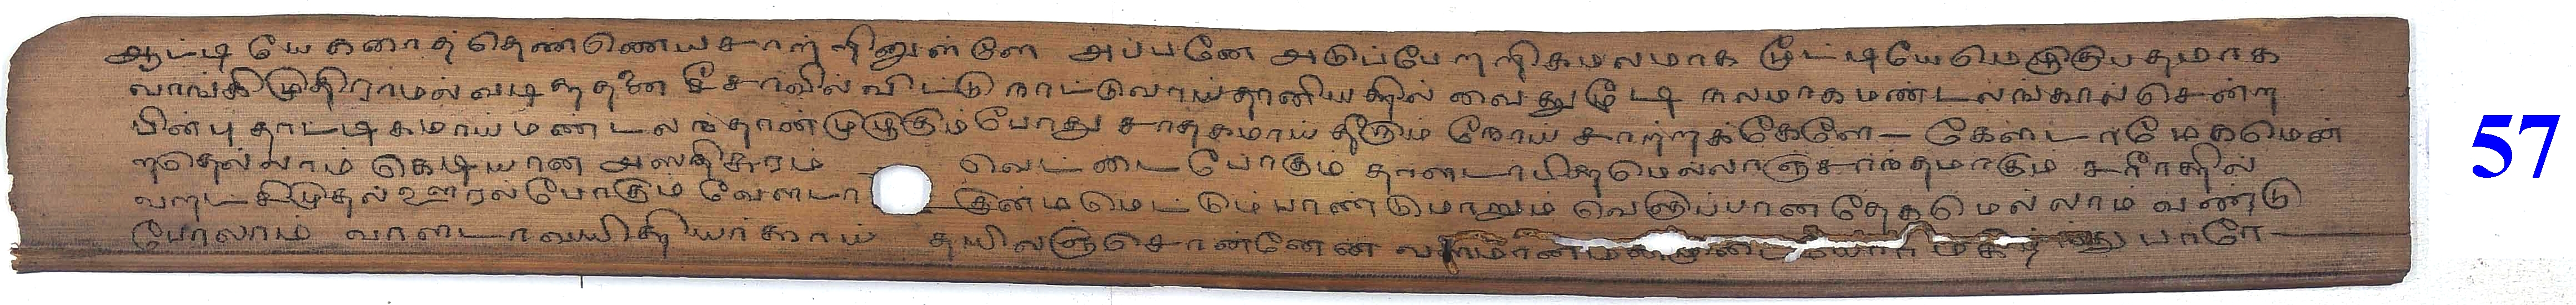 ஆட்டி யே களைத் தெண்ணெய சாற் றினுள்ளே அப்பனே அடுப்பேறறி கமலமாக மூட்டியே மெழுகுபதமாக
வாங்கி முதிராமல் வடி தனை சீசாவில் விட்டு நாட்டுவாய் தானியத்தில் வைத்து மூடி நலமாக மண்டலங்கால் சென்ற
பின்பு தாட்டிகமாய் மண்டலந்தான் முழுகும்போது சாதகமாய் தீரும் நோய் சாற்றக் கேளே கேளடா மேகமென்
றதெல்லாம் கெடியான அஸதிசுரம் வெட்டை போகும் தாளடா பித்தமெல்லாஞ் சாந்தமாகும் சரீரத்தில்
வறட்சி முதல் ஊரல் போகும் வேளடா குன்மமெட்டும் பாண்டு மாறும் வெளுப்பான தேகமெல்லாம் வண்டு
போலாம் வாளடா வயித்தியர்க்காய் தயிலஞ் சொன்னேன் பாரே